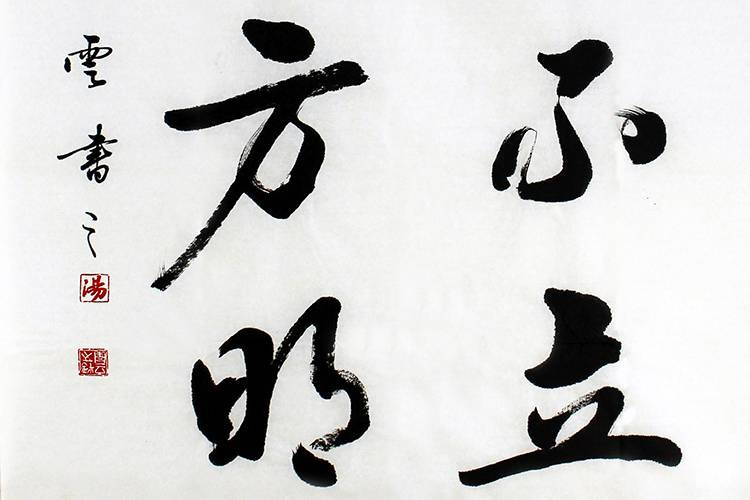 不立
方明
雲書之
湯